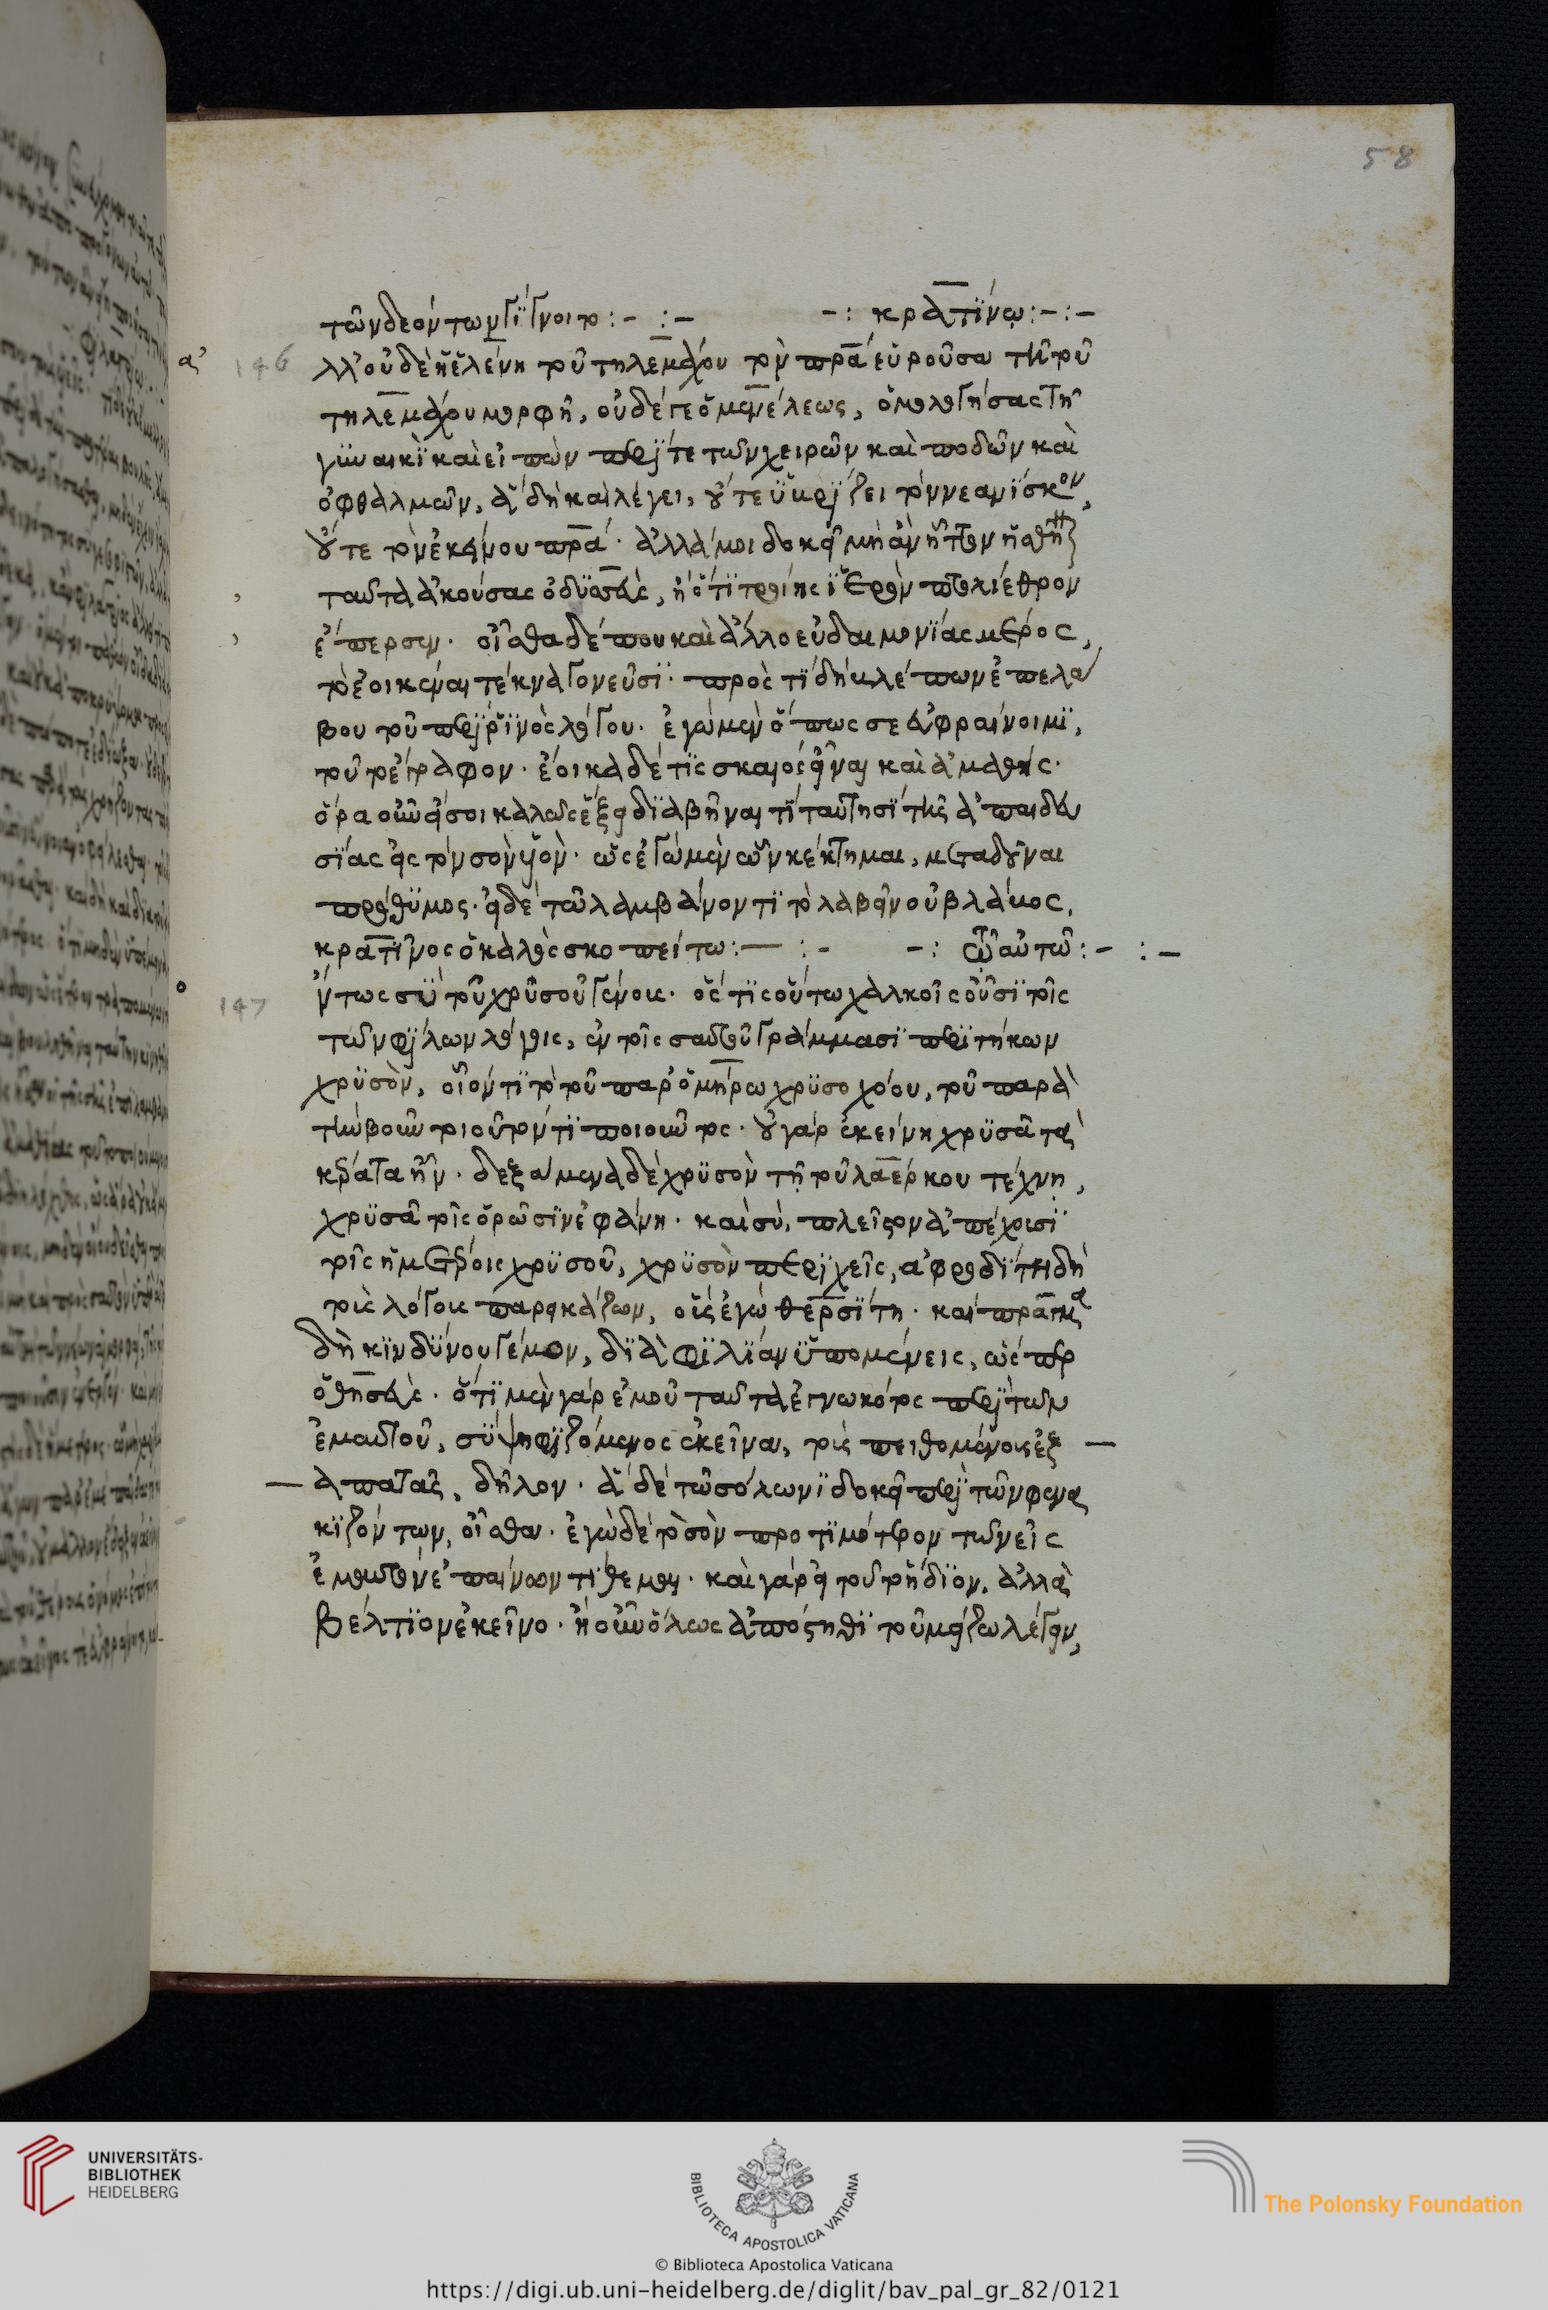 58
τῶν δεόντων γίγνοιτο :- :- -: κρατίνῳ :-:-
ἀ 146 λλ' οὐδὲ ἡ ἑλένη τοῦ τηλεμάχου τὸν πρα εὑροῦσα τῇ τοῦ
τηλεμάχου μορφῇ, οὐδέ γε ὁ μενέλεως, ὁμολογήσας τῇ
γυναικὶ καὶ εἰπὼν περί τε τῶν χειρῶν καὶ ποδῶν καὶ
ὀφθαλμῶν, ἃ δὴ καὶ λέγει, οὔτε ὑβρίζει τὸν νεανίσκον,
οὔτε τὸν ἐκείνου πρα· ἀλλά μοι δοκεῖ μὴ ἂν ἧττον ἡσθῆναι
ταῦτα ἀκούσας ὀδυσσεὺς, ἢ ὅτι τροίης ἱερὸν πτολίεθρον
ἔπερσεν· οἶσθα δέ που καὶ ἄλλο εὐδαιμονίας μέρος,
τὸ ἐοικέναι τέκνα γονεῦσι· πρὸς τί δὴ βλέπων ἐπελά
βου τοῦ περὶ ῥινὸς λόγου· ἐγὼ μὲν ὅπως σε εὐφραίνοιμι,
τοῦτο ἔγραφον· ἔοικα δέ τις σκαιὸς εἶναι καὶ ἀμαθής·
ὅρα οὖν εἴ σοι καλῶς ἕξει διαβῆναί τι ταύτησι τῆς ἀπαιδευ
σίας εἰς τὸν σὸν υἱόν· ὡς ἐγὼ μὲν ὧν κέκτημαι, μεταδοῦναι
πρόθυμος· εἰ δὲ τῷ λαμβάνοντι τὸ λαβεῖν οὐ βλάβος,
κρατῖνος ὁ καλὸς σκοπείτω :— :- -: τῷ αὐτῷ :- :-
ὄ 147 ντως σὺ τοῦ χρυσοῦ γένους· ὅς τις οὕτω χαλκοῖς οὖσι τοῖς
τῶν φίλων λόγοις, ἐν τοῖς σαυτοῦ γράμμασι περιτήκων
χρυσὸν, οἷόν τι τὸ τοῦ παρ' ὁμήρω χρυσοχόου, τοῦ παρὰ
τὴν βοῦν τοιοῦτόν τι ποιοῦντος· οὐ γὰρ ἐκείνη χρυσᾶ τὰ
κέρατα ἦν· δεξάμενα δὲ χρυσὸν τῇ τοῦ λαέρκου τέχνῃ,
χρυσᾶ τοῖς ὁρῶσιν ἐφάνη· καὶ σὺ, πλεῖστον ἀπέχουσι
τοῖς ἡμετέροις χρυσοῦ, χρυσὸν περιχεῖς, ἀφροδίτῃ δὴ
τοὺς λόγους παρεικάζων, οὓς ἐγὼ θερσίτῃ· καὶ πρᾶγμα
δὴ κινδύνου γέμον, διὰ φιλίαν ὑπομένεις, ὥσπερ
ὁ θησεὺς· ὅτι μὲν γὰρ ἐμοῦ ταῦτα ἐγνωκότος περὶ τῶν
ἐμαυτοῦ, σὺ ψηφιζόμενος ἐκεῖνα, τοὺς πειθομένους ἐξ —
— απατᾷς, δῆλον· ἃ δὲ τῷ σόλωνι δοκεῖ περὶ τῶν φενα
κιζόντων, οἶσθα· ἐγὼ δὲ τὸ σὸν προτιμότερον τῶν εἰς
ἐμαυτὸν ἐπαίνων τίθεμαι· καὶ γὰρ εἰ τοῦτο ἥδιον, ἀλλὰ
βέλτιον ἐκεῖνο· ἢ οὖν ὅλως ἀπόστηθι τοῦ μείζω λέγειν,
UNIVERSITÄTS-
BIBLIOTHEK
HEIDELBERG
BIBLIOTECA APOSTOLICA VATICANA
The Polonsky Foundation
© Biblioteca Apostolica Vaticana
https://digi.ub.uni-heidelberg.de/diglit/bav_pal_gr_82/0121